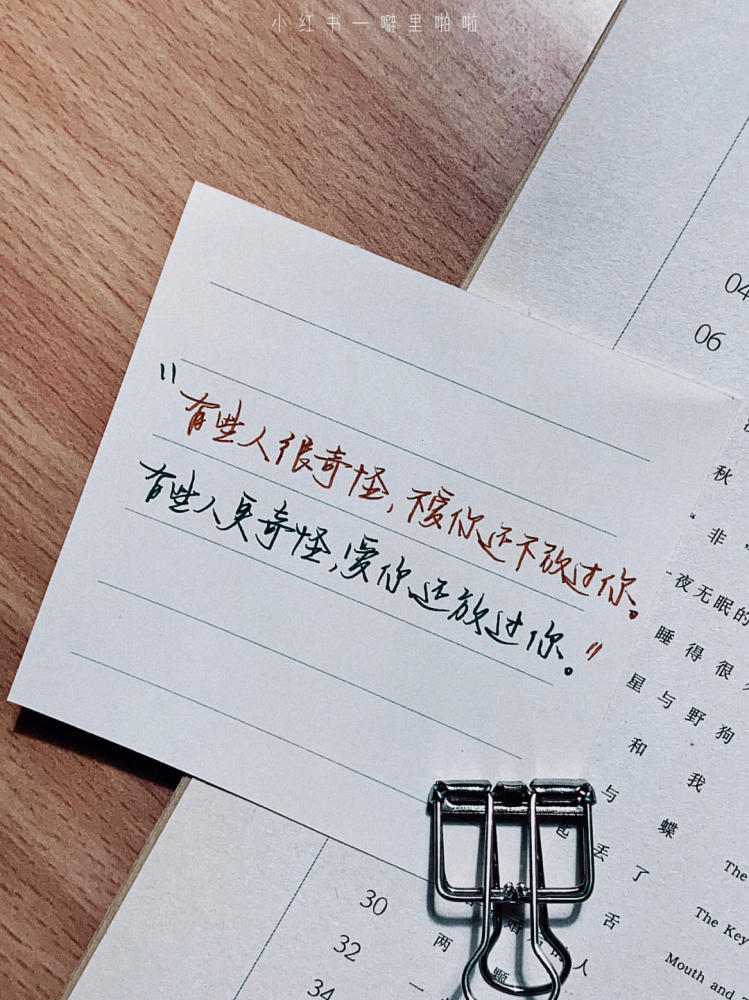 小红书一噼里啪啦
"有些人很奇怪，不爱你还不放过你。
有些人更奇怪，爱你还放过你。"
04
06
秋
“非
一夜无眠的
睡得很
星与野狗
和我
与蝶
丢了
舌
30
32
34
两颗
人
The
The Key
Mouth and